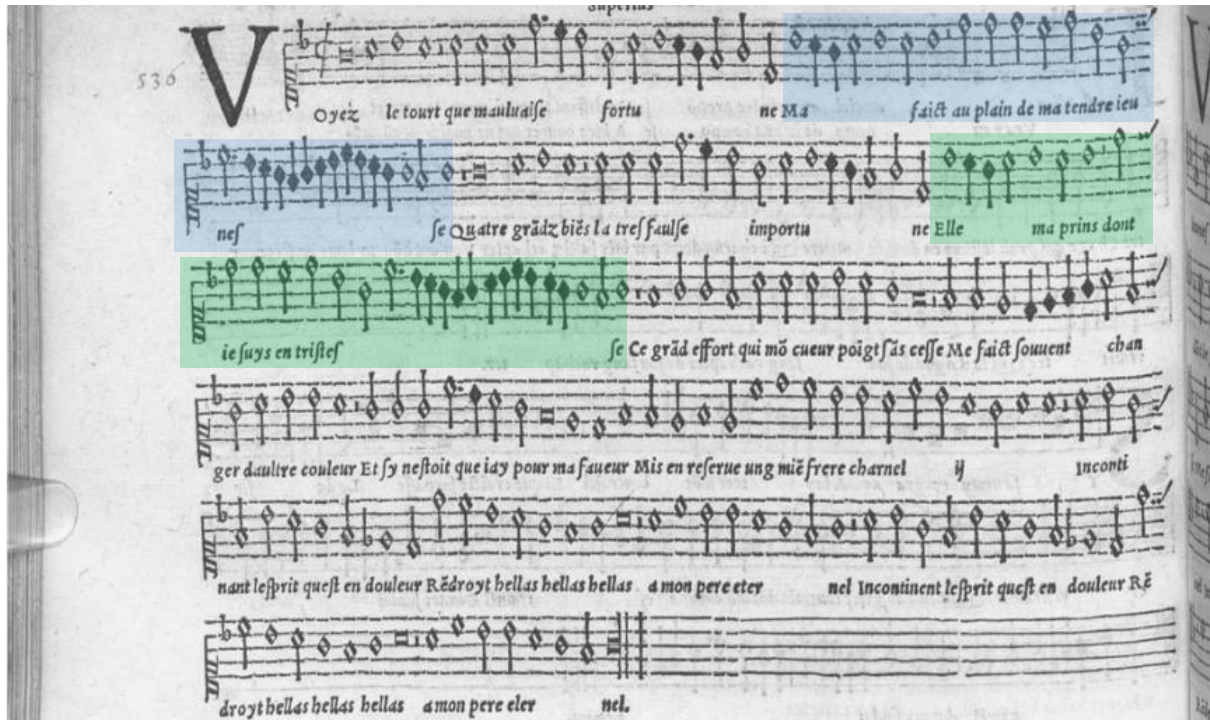 Superius
536
VOyez le tourt que mauluaise fortu ne Ma faict au plain de ma tendre ieu
nes se Quatre grãdz biẽs la tres faulse importu ne Elle ma prins dont
ie suys en tristes se Ce grãd effort qui mõ cueur poĩgt sãs cesse Me faict souuent chan
ger daultre couleur Et sy nestoit que iay pour ma faueur Mis en reserue ung miẽ frere charnel ij Inconti
nant lesprit quest en douleur Rẽdroyt hellas hellas hellas a mon pere eter nel Incontinent lesprit quest en douleur Rẽ
droyt hellas hellas hellas a mon pere eter nel.